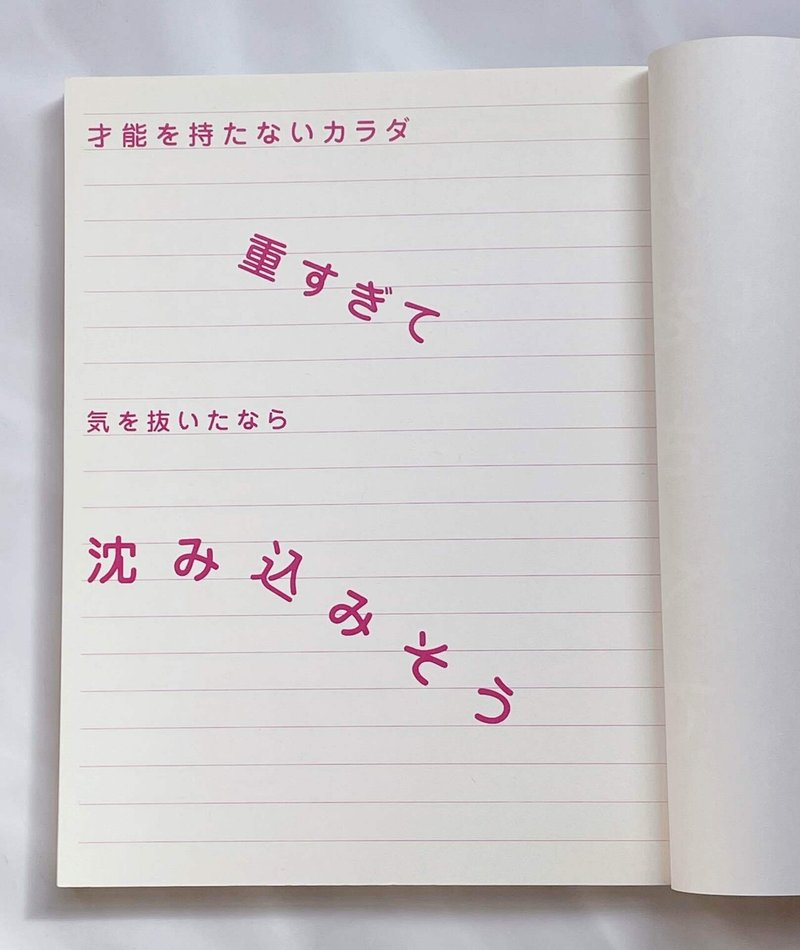 才能を持たないカラダ
重すぎて
気を抜いたなら
沈み込みそう